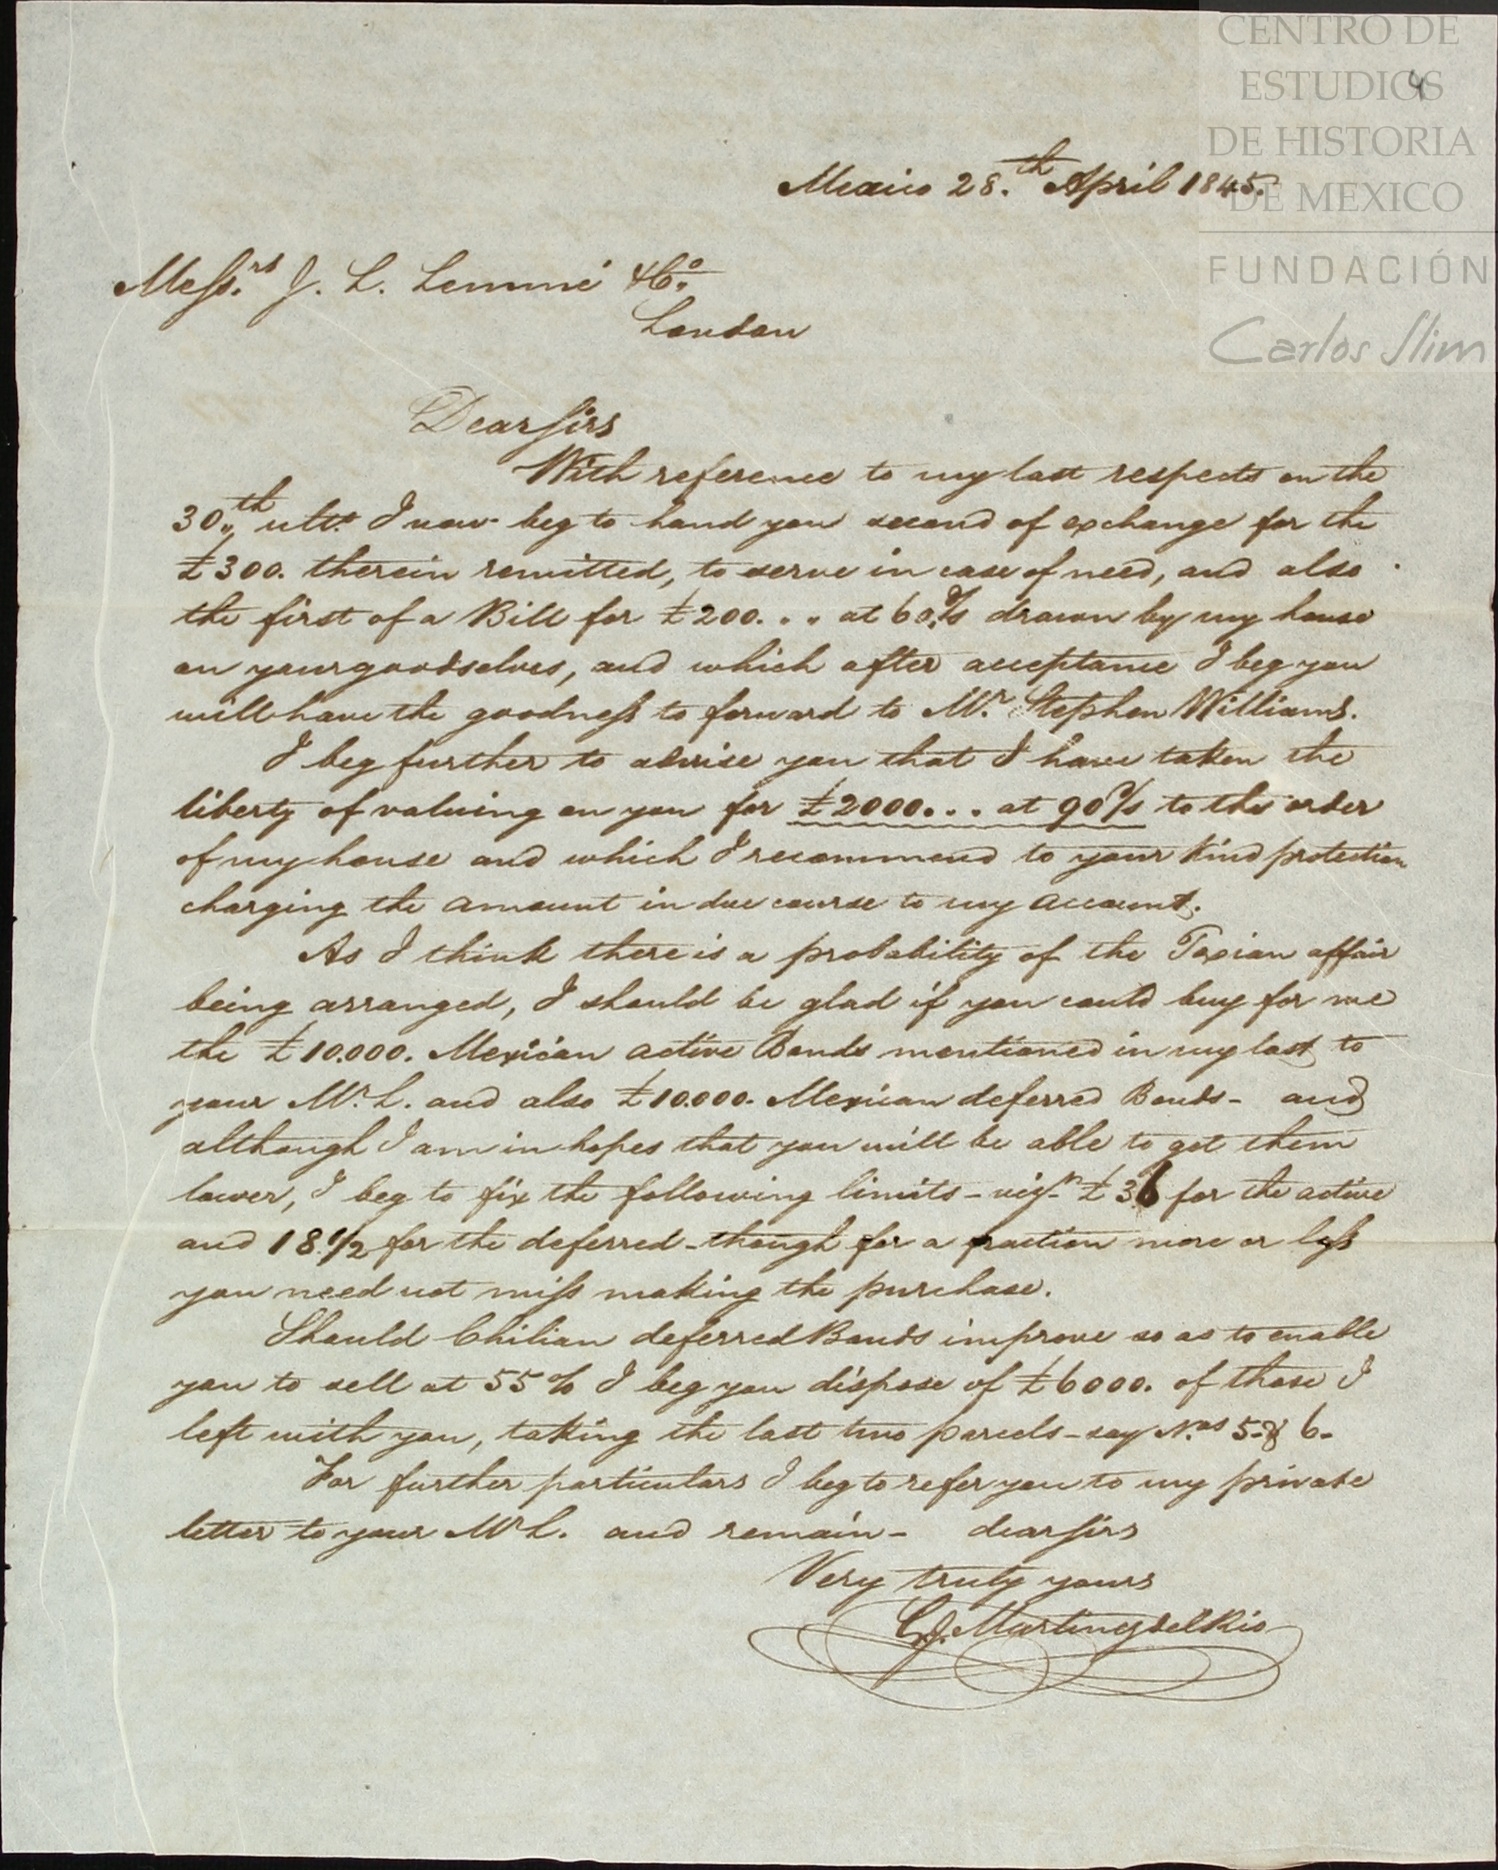 CENTRO DE
ESTUDIOS
DE HISTORIA
DE MEXICO
FUNDACIÓN
Carlos Slim
4
Mexico 28.th April 1845.
Mess.rs J. L. Lemmé & Co.
London
Dear Sirs
With reference to my last respects on the
30.th ult.o I now beg to hand you second of exchange for the
£300. therein remitted, to serve in case of need, and also
the first of a Bill for £200... at 60 d/s drawn by my house
on yourgoodselves, and which after acceptance I beg you
will have the goodness to forward to Mr. Stephen Williams.
I beg further to advise you that I have taken the
liberty of valuing on you for £2000... at 90 d/s to the order
of my house and which I recommend to your kind protection
charging the amount in due course to my account.
As I think there is a probability of the Texian affair
being arranged, I should be glad if you could buy for me
the £10.000. Mexican active Bonds mentioned in my last to
your Mr. L. and also £10.000. Mexican deferred Bonds - and
although I am in hopes that you will be able to get them
lower, I beg to fix the following limits - viz. £36 for the active
and 18 1/2 for the deferred - though for a fraction more or less
you need not miss making the purchase.
Should Chilian deferred Bonds improve so as to enable
you to sell at 55% I beg you dispose of £6000. of those I
left with you, taking the last two parcels - say N.os 5 & 6.
For further particulars I beg to refer you to my private
letter to your Mr L. and remain - dear Sirs
Very truly yours
J. Martinez del Rio